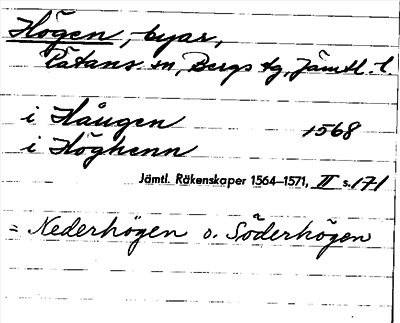 Högen, byar,
Råtans sn, Bergs tg, Jämtl. l.
i Haugen 1568
i Höghenn
Jämtl. Räkenskaper 1564–1571, II s. 171
= Nederhögen o. Söderhögen